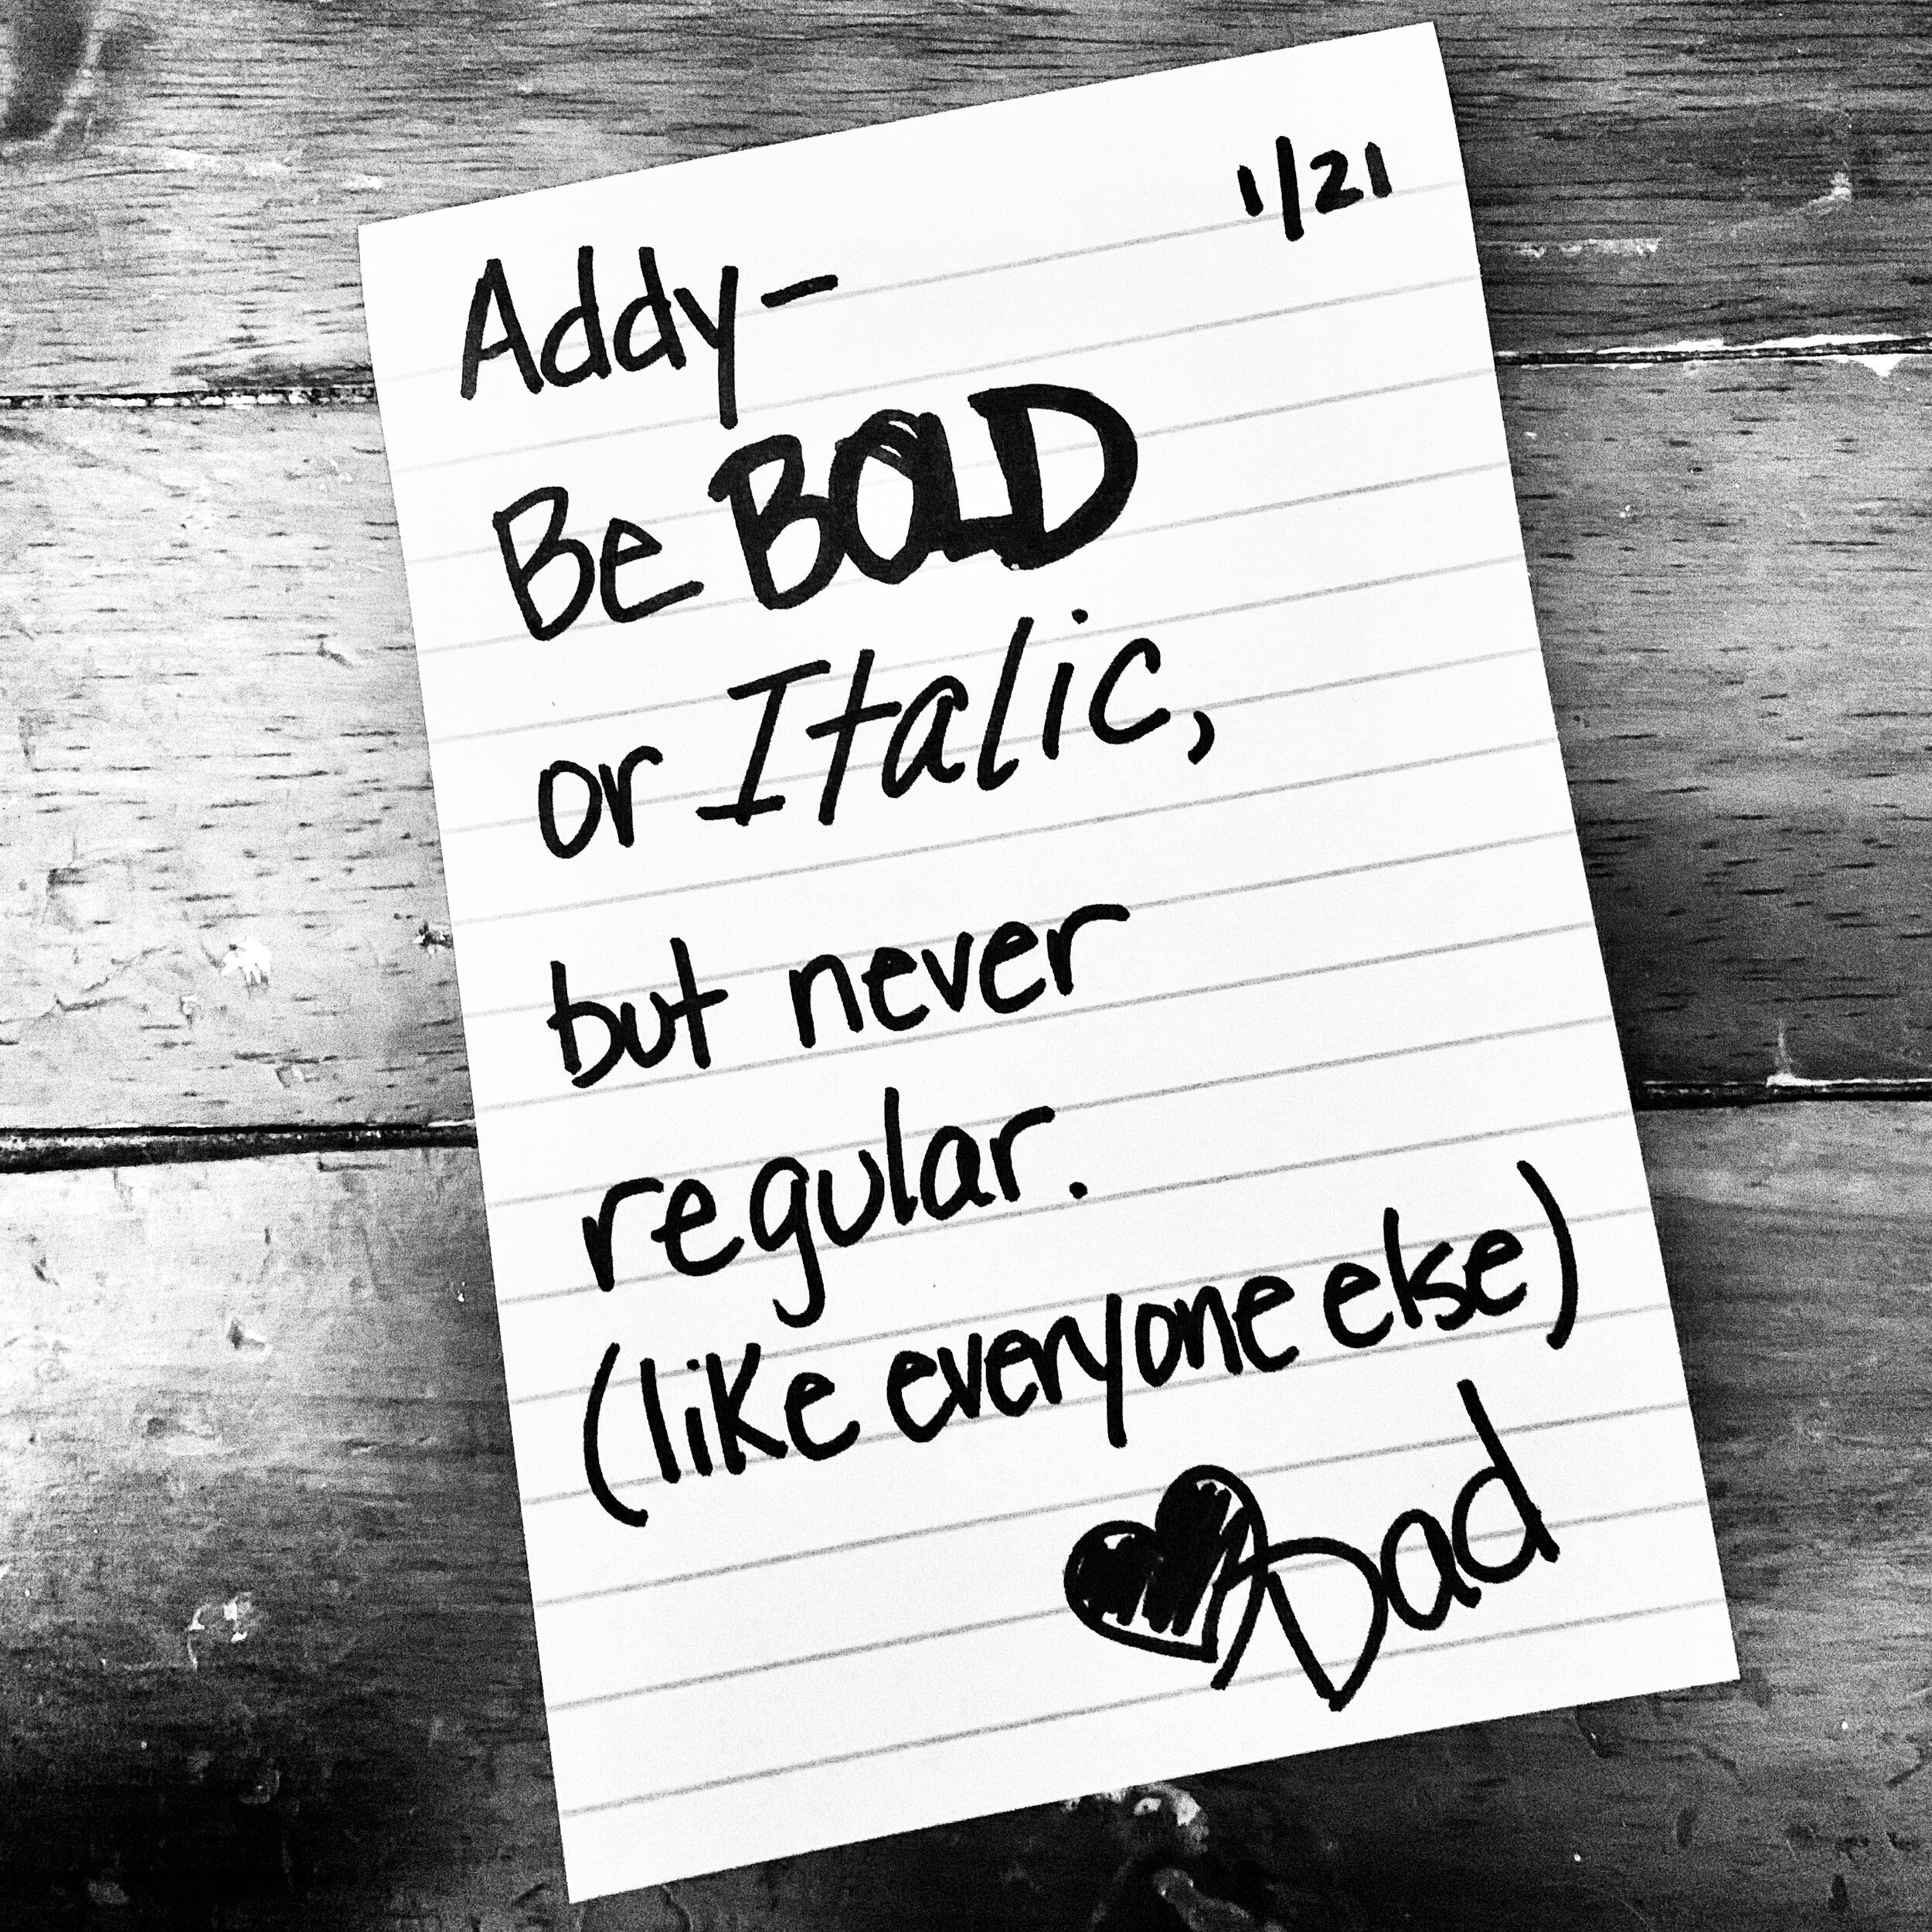 1/21
Addy-
Be BOLD
or Italic,
but never
regular.
(like everyone else)
Dad